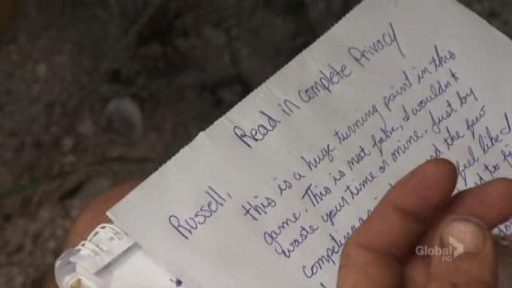 Read in Complete Privacy
Russell,
this is a huge turning point in this
game. This is not fake, I wouldn't
waste your time or mine. Just by
the few
feel like I
to
Global
HD